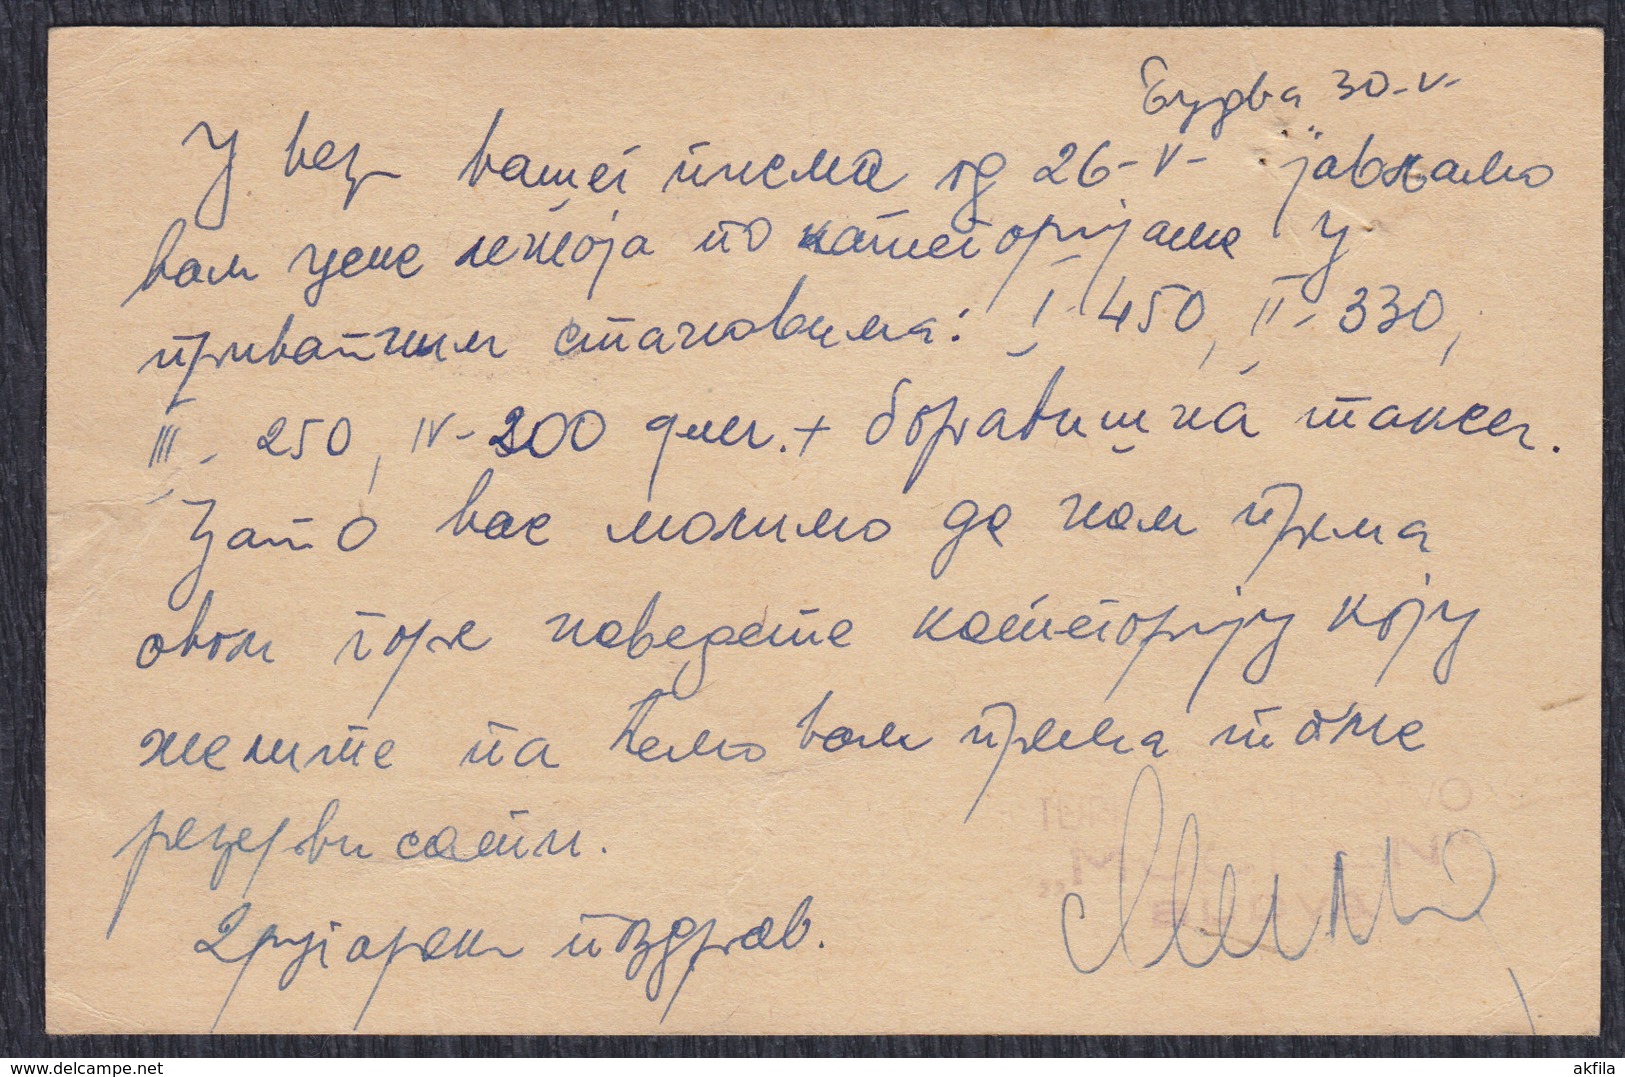 Будва 30-V-
У вези вашег писма од 26-V- јављамо
вам цене лежаја по категоријама у
приватним становима: I-450, II-330,
III- 250, IV-200 дин. + боравишна такса.
Зато вас молимо да нам према
овом горе наведете категорију коју
желите па ћемо вам према томе
резервисати.
Другарски поздрав.
BUDVA
akfila